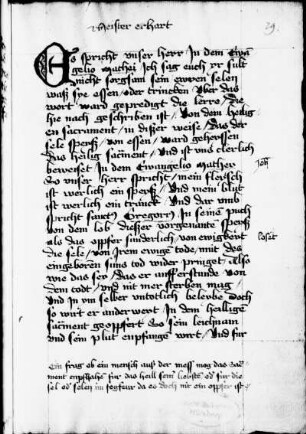 Meister erhart
29.
Es spricht vnser herr In dem Ewa
gelio Mathei Ich sag euch Ir sult
nicht sorgsam sein ewren selen
was sye essen oder trincken Vber das
wort ward geprediget die lerre die
hie nach geschriben ist Von dem heilig
en sacrament in diser weise das der
sele speys von essen ward geheyssen
das heilig sacment Vnd ist vns clerlich
beweset In dem Ewangelio Mathei
Do vnser herr spricht mein fleysch
ist werlich ein speys Vnd mein blut
ist werlich ein tranck Vnd dar vmb
spricht sanct Gregory In seinem puch
von dem lob dieser vorgenante speys
als das opfer sunderlich von ewigkeit
die sele von Irem ewigen tode mit des
eingeboren suns tod wider pringet also
wie das sey das er aufferstunde von
dem todt vnd nit mer sterben mag
Vnd in vm selber vntotlich beleybe Doch
so wirt er anderwert In dem heiligen
sacment geopfert Do sein leichnam
vnd sein plut enpfangen wirt Vnd für
Joh
Ein frag ob ein mensch auß der mess mag das sac
ment enpfahen für das heil sein
sel od selen im fegfeur da es doch nit ein opfer ist